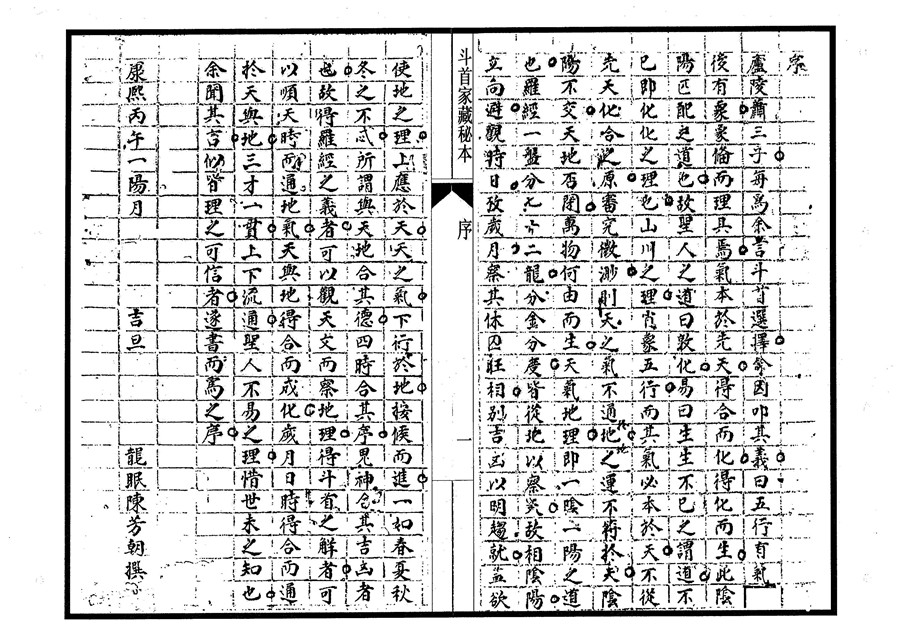 序
廬陵蕭三子每為余言斗首選擇余因叩其義曰五行有氣
後有象象偹而理具焉氣本於先天得合而化得化而生此陰
陽匹配之道也故聖人之道曰敦化易曰生生不已之謂道不
已即化化之理也山川之理肖象五行而其氣必本於天不從
先天化合之原畨究微渺則天之氣不通地之運不符於天陰
陽不交天地否閉萬物何由而生天氣地理即一陰一陽之道
也羅經一盤分七十二龍分金分度皆從地以察天故相陰陽
立向避觀時日攷歲月察其休囚旺相别吉凶以明趨就葢欲
斗首家藏秘本
序
一
使地之理上應於天天之氣下行於地按候而進一如春夏秋
冬之不忒所謂與天地合其德四時合其序鬼神合其吉凶者
也故得羅經之義者可以觀天文而察地理得斗首之解者可
以順天時而通地氣天與地得合而成化歲月日時得合而通
於天與地三才一貫上下流通聖人不易之理惜世未之知也
余聞其言似皆理之可信者遂書而爲之序
康熙丙午一陽月
吉旦
龍眠陳芳朝撰